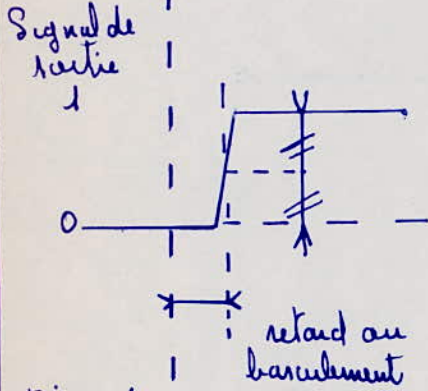 Signal de
sortie
1
0
retard au
basculement